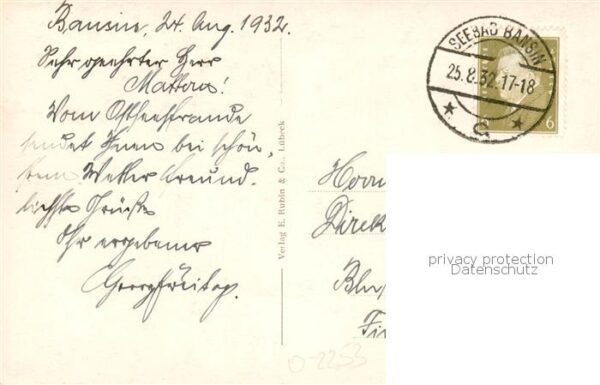 Bansin, 24. Aug. 1932.
Sehr geehrter Herr
Mattern!
Vom Ostseestrande
sendet Ihnen bei schön,
stem Wetter freund,
lichste Grüße
Ihr ergebener
Georg Freitag.
Verlag E. Rubin & Co., Lübeck
SEEBAD BANSIN
25.8.32.17-18
* C *
6
Herrn
Direk
Bln
privacy protection
Datenschutz
0-2253